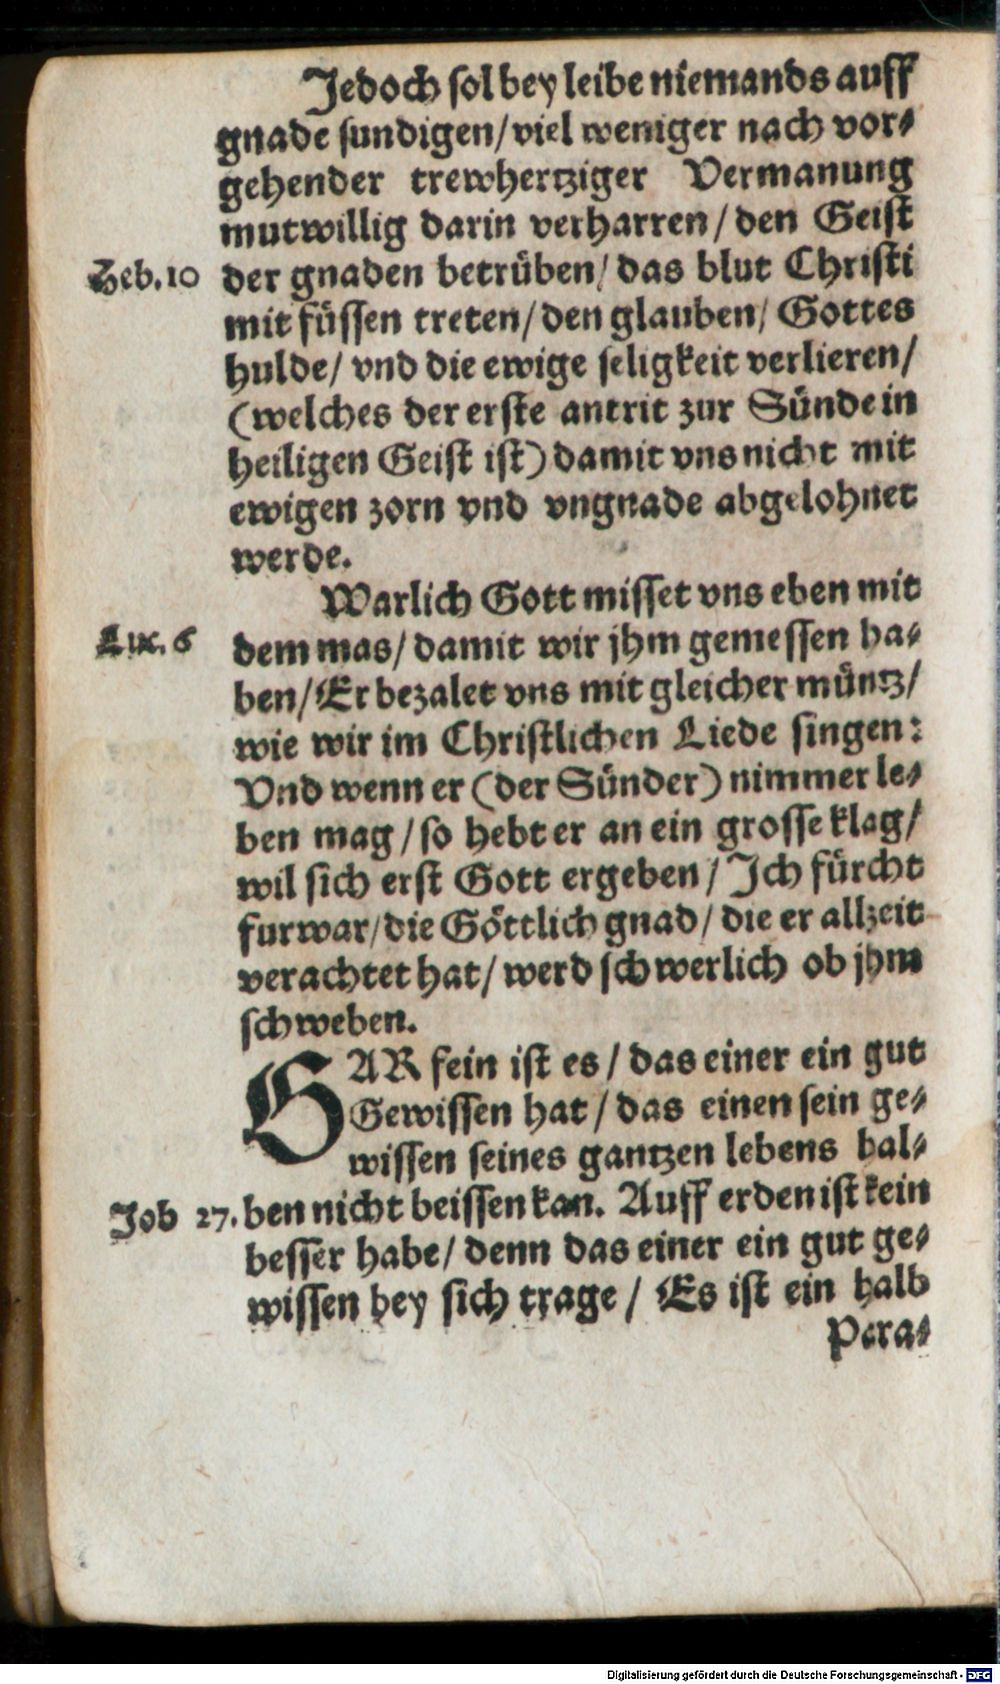 Jedoch sol bey leibe niemands auff
gnade sundigen/ viel weniger nach vor-
gehender trewhertziger Vermanung
mutwillig darin verharren/ den Geist
Heb. 10 der gnaden betrüben/ das blut Christi
mit füssen treten/ den glauben/ Gottes
hulde/ vnd die ewige seligkeit verlieren/
(welches der erste antrit zur Sünde in
heiligen Geist ist) damit vns nicht mit
ewigen zorn vnd vngnade abgelohnet
werde.
Warlich Gott misset vns eben mit
Luc. 6 dem mas/ damit wir jhm gemessen ha-
ben/ Er bezalet vns mit gleicher müntz/
wie wir im Christlichen Liede singen:
Vnd wenn er (der Sünder) nimmer le-
ben mag/ so hebt er an ein grosse klag/
wil sich erst Gott ergeben/ Ich fürcht
furwar/ die Göttlich gnad/ die er allzeit
verachtet hat/ werd schwerlich ob jhm
schweben.
GAR fein ist es/ das einer ein gut
Gewissen hat/ das einen sein ge-
wissen seines gantzen lebens hal-
Job 27. ben nicht beissen kan. Auff erden ist kein
besser habe/ denn das einer ein gut ge-
wissen bey sich trage/ Es ist ein halb
Para-
Digitalisierung gefördert durch die Deutsche Forschungsgemeinschaft - DFG